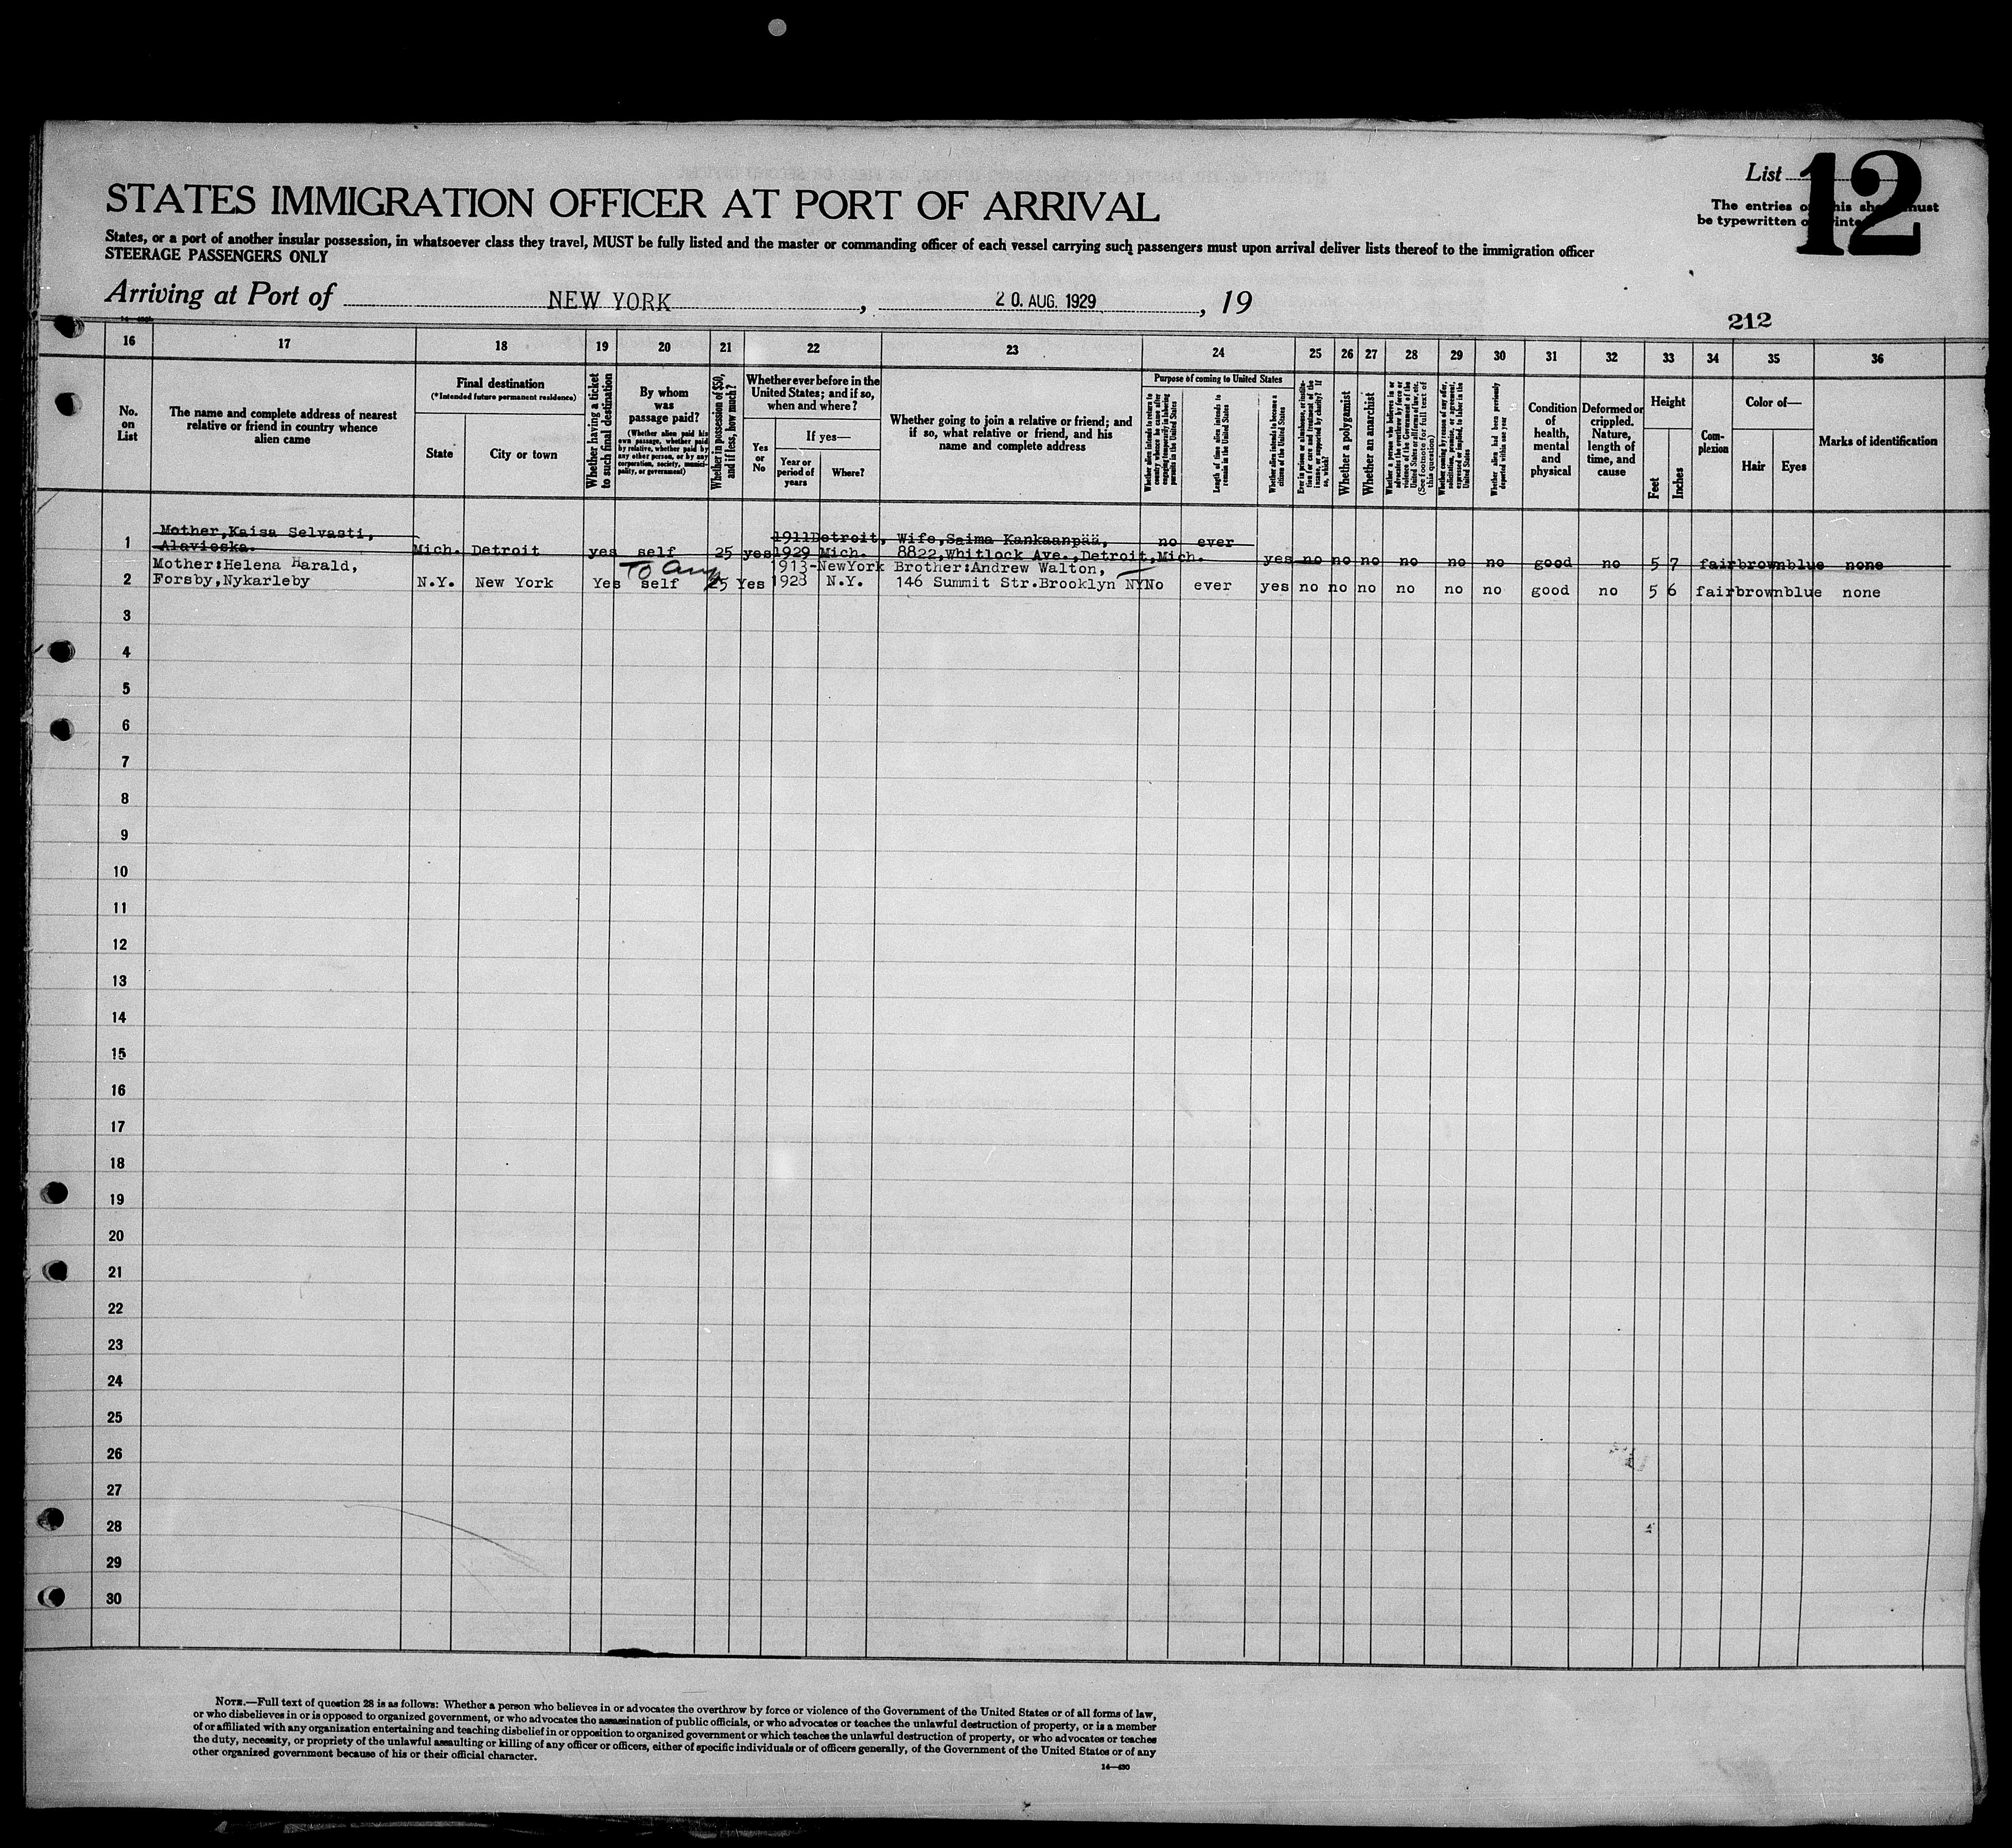 List 12
STATES IMMIGRATION OFFICER AT PORT OF ARRIVAL
The entries on this sheet must
be typewritten or printed
States, or a port of another insular possession, in whatsoever class they travel, MUST be fully listed and the master or commanding officer of each vessel carrying such passengers must upon arrival deliver lists thereof to the immigration officer
STEERAGE PASSENGERS ONLY
Arriving at Port of NEW YORK, 20. AUG. 1929, 19
212
16 17 18 19 20 21 22 23 24 25 26 27 28 29 30 31 32 33 34 35 36
No. on List
The name and complete address of nearest relative or friend in country whence alien came
Final destination
(*Intended future permanent residence)
State
City or town
Whether having a ticket to such final destination
By whom was passage paid?
(Whether alien paid his own passage, whether paid by relative, whether paid by any other person, or by any corporation, society, municipality, or government)
Whether in possession of $50, and if less, how much?
Whether ever before in the United States; and if so, when and where?
Yes or No
If yes—
Year or period of years
Where?
Whether going to join a relative or friend; and if so, what relative or friend, and his name and complete address
Purpose of coming to United States
Whether alien intends to return to country whence he came after engaging temporarily in laboring pursuits in the United States
Length of time alien intends to remain in the United States
Whether alien intends to become a citizen of the United States
Ever in prison or almshouse, or institution for care and treatment of the insane, or supported by charity? If so, which?
Whether a polygamist
Whether an anarchist
Whether a person who believes in or advocates the overthrow by force or violence of the Government of the United States or all forms of law, etc. (See footnote for full text of this question)
Whether coming by reason of any offer, solicitation, promise, or agreement, expressed or implied, to labor in the United States
Whether alien had been previously deported within one year
Condition of health, mental and physical
Deformed or crippled. Nature, length of time, and cause
Height
Feet
Inches
Complexion
Color of—
Hair
Eyes
Marks of identification
1 Mother,Kaisa Selvasti, 1911 Detroit, Wife,Saima Kankaanpää, no ever
Alavieska. Mich. Detroit yes self 25 yes 1929 Mich. 8822,Whitlock Ave.,Detroit,Mich. yes no no no no no no good no 5 7 fair brown blue none
Mother:Helena Harald, 1913- NewYork Brother:Andrew Walton,
2 Forsby,Nykarleby N.Y. New York Yes self 25 Yes 1928 N.Y. 146 Summit Str.Brooklyn NY No ever yes no no no no no no good no 5 6 fair brown blue none
3
4
5
6
7
8
9
10
11
12
13
14
15
16
17
18
19
20
21
22
23
24
25
26
27
28
29
30
NOTE.—Full text of question 28 is as follows: Whether a person who believes in or advocates the overthrow by force or violence of the Government of the United States or of all forms of law,
or who disbelieves in or is opposed to organized government, or who advocates the assassination of public officials, or who advocates or teaches the unlawful destruction of property, or is a member
of or affiliated with any organization entertaining and teaching disbelief in or opposition to organized government or which teaches the unlawful destruction of property, or who advocates or teaches
the duty, necessity, or propriety of the unlawful assaulting or killing of any officer or officers, either of specific individuals or of officers generally, of the Government of the United States or of any
other organized government because of his or their official character.